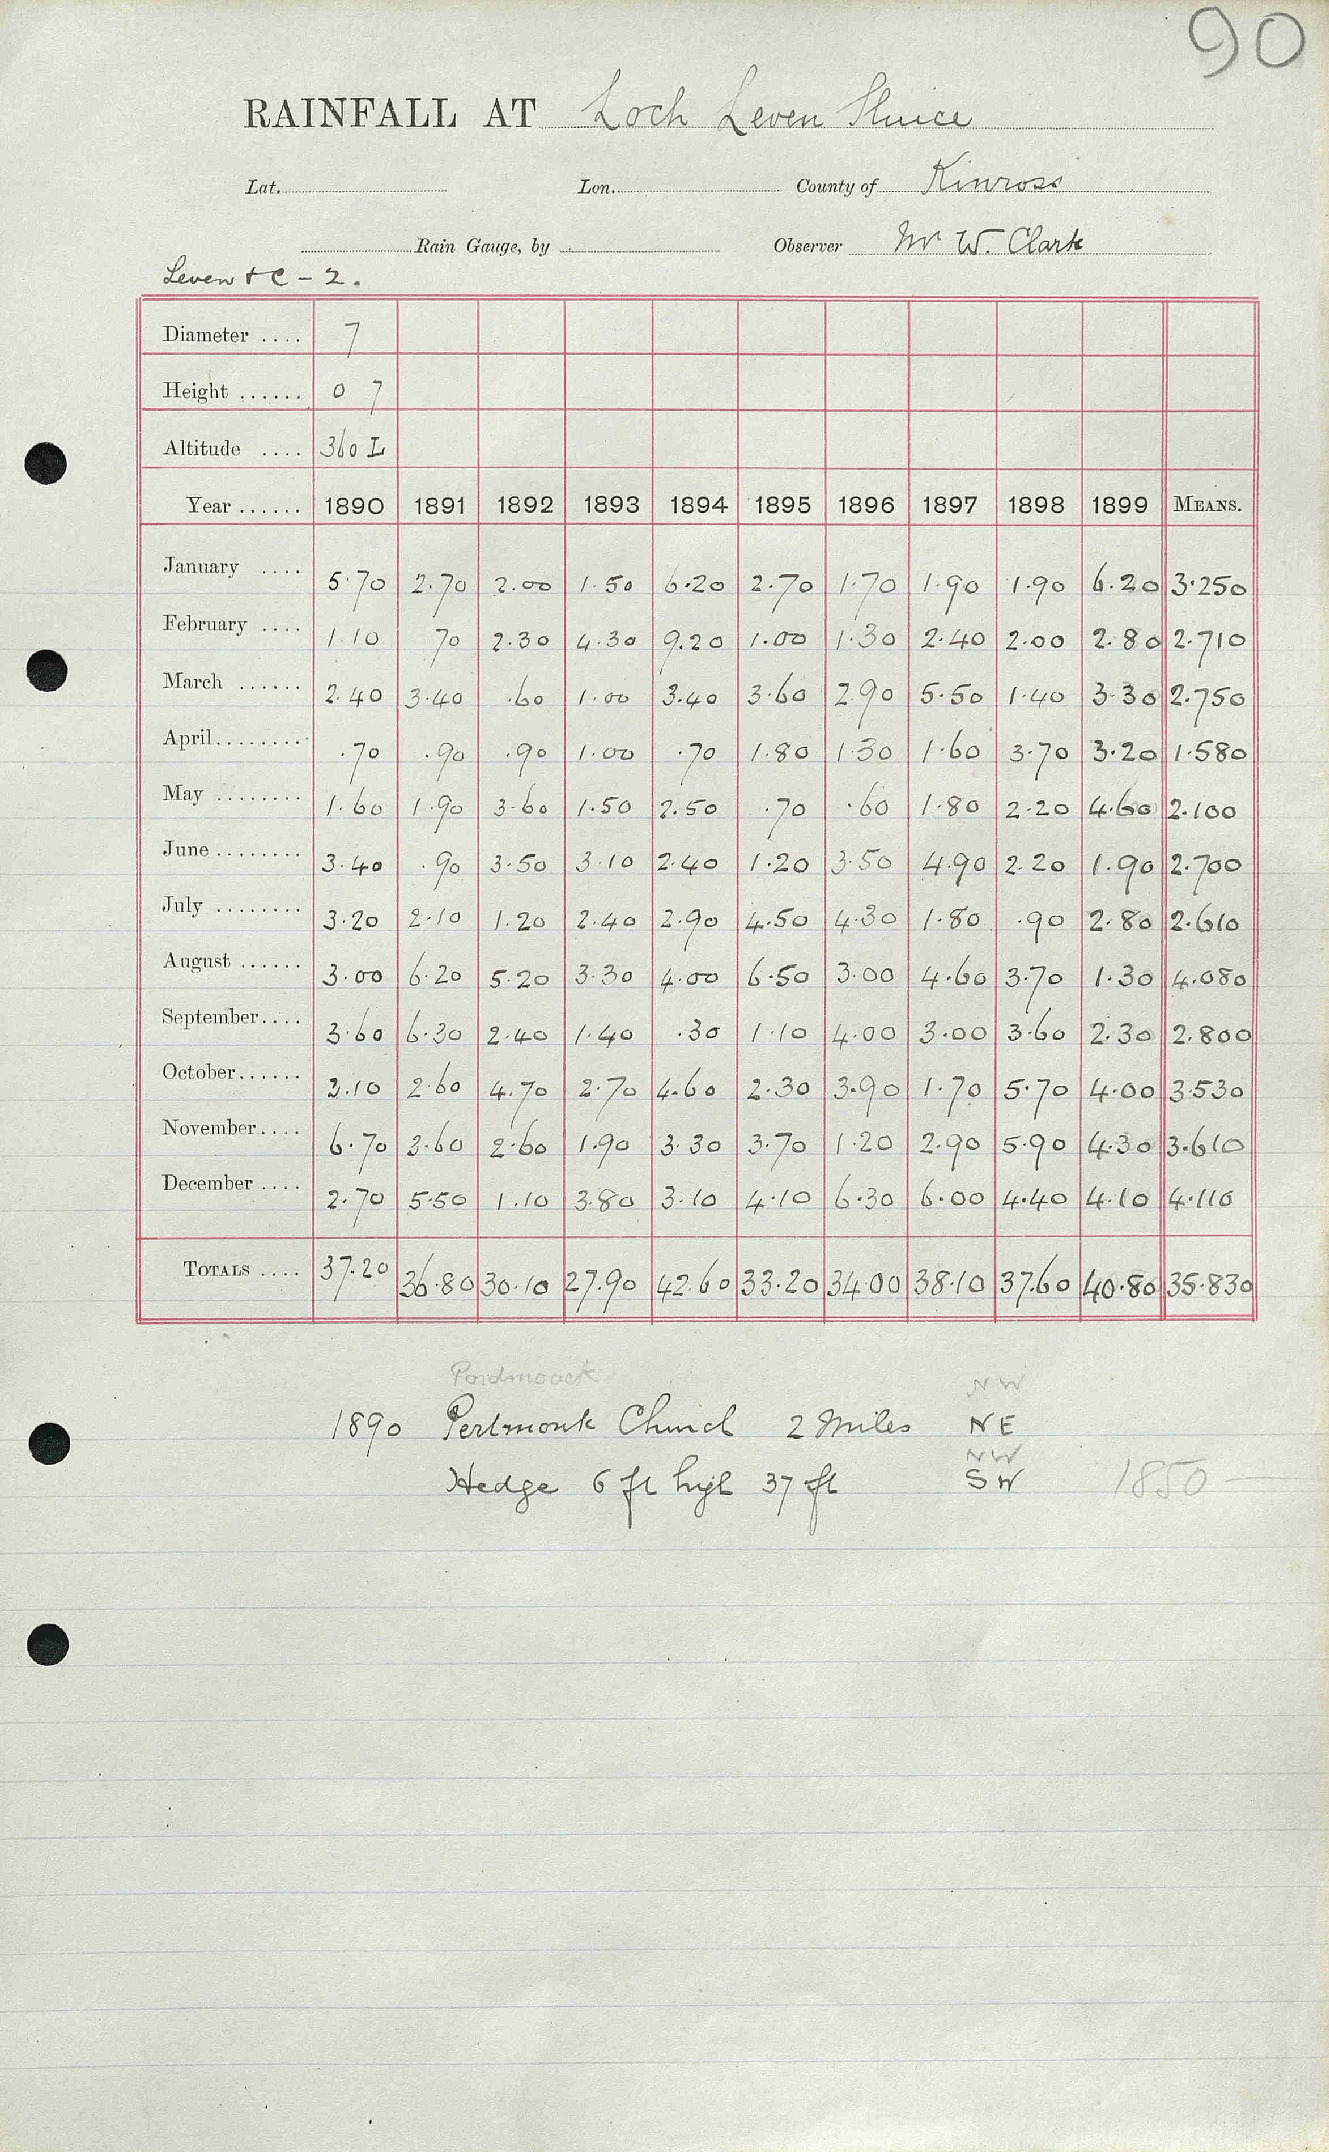 90
RAINFALL AT Loch Leven Sluice
Lat. Lon. County of Kinross
Rain Gauge, by Observer Mr W. Clark
Leven + C - 2.
Diameter .... 7
Height ...... 0 7
Altitude .... 360 L
Year ...... 1890 1891 1892 1893 1894 1895 1896 1897 1898 1899 MEANS.
January .... 5.70 2.70 2.00 1.50 6.20 2.70 1.70 1.90 1.90 6.20 3.250
February .... 1.10 70 2.30 4.30 9.20 1.00 1.30 2.40 2.00 2.80 2.710
March ...... 2.40 3.40 .60 1.00 3.40 3.60 2.90 5.50 1.40 3.30 2.750
April........ .70 .90 .90 1.00 .70 1.80 1.30 1.60 3.70 3.20 1.580
May ........ 1.60 1.90 3.60 1.50 2.50 .70 .60 1.80 2.20 4.60 2.100
June........ 3.40 .90 3.50 3.10 2.40 1.20 3.50 4.90 2.20 1.90 2.700
July ........ 3.20 2.10 1.20 2.40 2.90 4.50 4.30 1.80 .90 2.80 2.610
August ...... 3.00 6.20 5.20 3.30 4.00 6.50 3.00 4.60 3.70 1.30 4.080
September.... 3.60 6.30 2.40 1.40 .30 1.10 4.00 3.00 3.60 2.30 2.800
October...... 3.10 2.60 4.70 2.70 4.60 2.30 3.90 1.70 5.70 4.00 3.530
November.... 6.70 3.60 2.60 1.90 3.30 3.70 1.20 2.90 5.90 4.30 3.610
December .... 2.70 5.50 1.10 3.80 3.10 4.10 6.30 6.00 4.40 4.10 4.110
TOTALS .... 37.20 36.80 30.10 27.90 42.60 33.20 34.00 38.10 37.60 40.80 35.830
NW
1890 Pertmonk Church 2 Miles NE
NW
Hedge 6 ft high 37 ft SW 1850